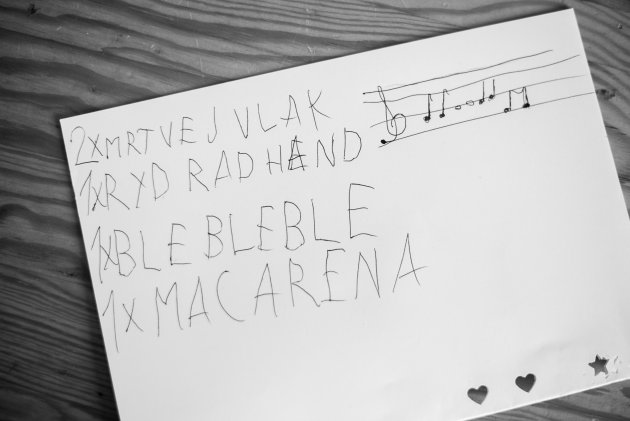 2xMRTVEJ VLAK
1xRYD RADHEND
1xBLEBLEBLE
1xMACARENA